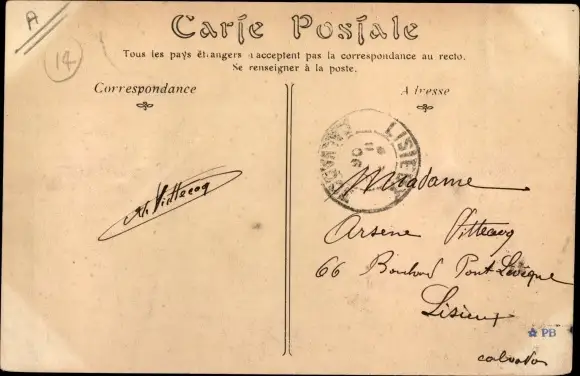 A
14
Carte Postale
Tous les pays étrangers n'acceptent pas la correspondance au recto.
Se renseigner à la poste.
Correspondance
Adresse
LISIEUX
11
06
Vittecoq
Madame
Arsène Vittecoq
66 Boulvd Pont Lévêque
Lisieux
PB
calvados